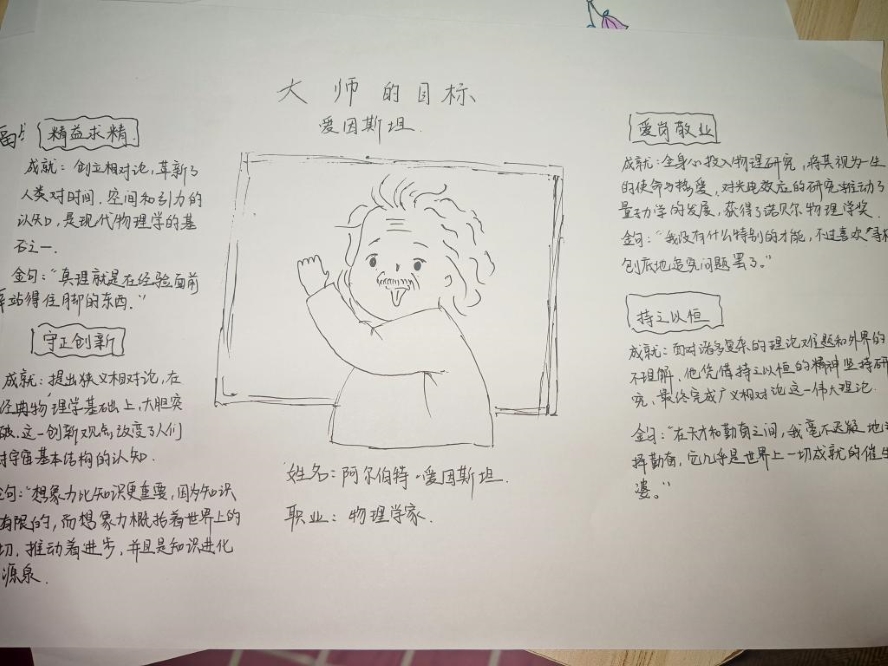 大师的目标
爱因斯坦
精益求精
成就：创立相对论，革新了
人类对时间、空间和引力的
认知，是现代物理学的基
石之一.
金句：“真理就是在经验面前
站得住脚的东西.”
守正创新
成就：提出狭义相对论，在
经典物理学基础上，大胆突
破.这一创新观点改变了人们
对宇宙基本结构的认知.
金句：“想象力比知识更重要，因为知识
有限的，而想象力概括着世界上的
切，推动着进步，并且是知识进化
源泉.
姓名：阿尔伯特·爱因斯坦.
职业：物理学家.
爱岗敬业
成就：全身心投入物理研究，将其视为一生
的使命与热爱，对光电效应的研究推动了
量子学的发展，获得了诺贝尔物理学奖.
金句：“我没有什么特别的才能，不过喜欢寻根
刨底地追究问题罢了。”
持之以恒
成就：面对诸多复杂的理论难题和外界的
不理解，他凭借持之以恒的精神坚持研
究，最终完成广义相对论这一伟大理论.
金句：“在天才和勤奋之间，我毫不迟疑地
择勤奋，它几乎是世界上一切成就的催生
婆。”